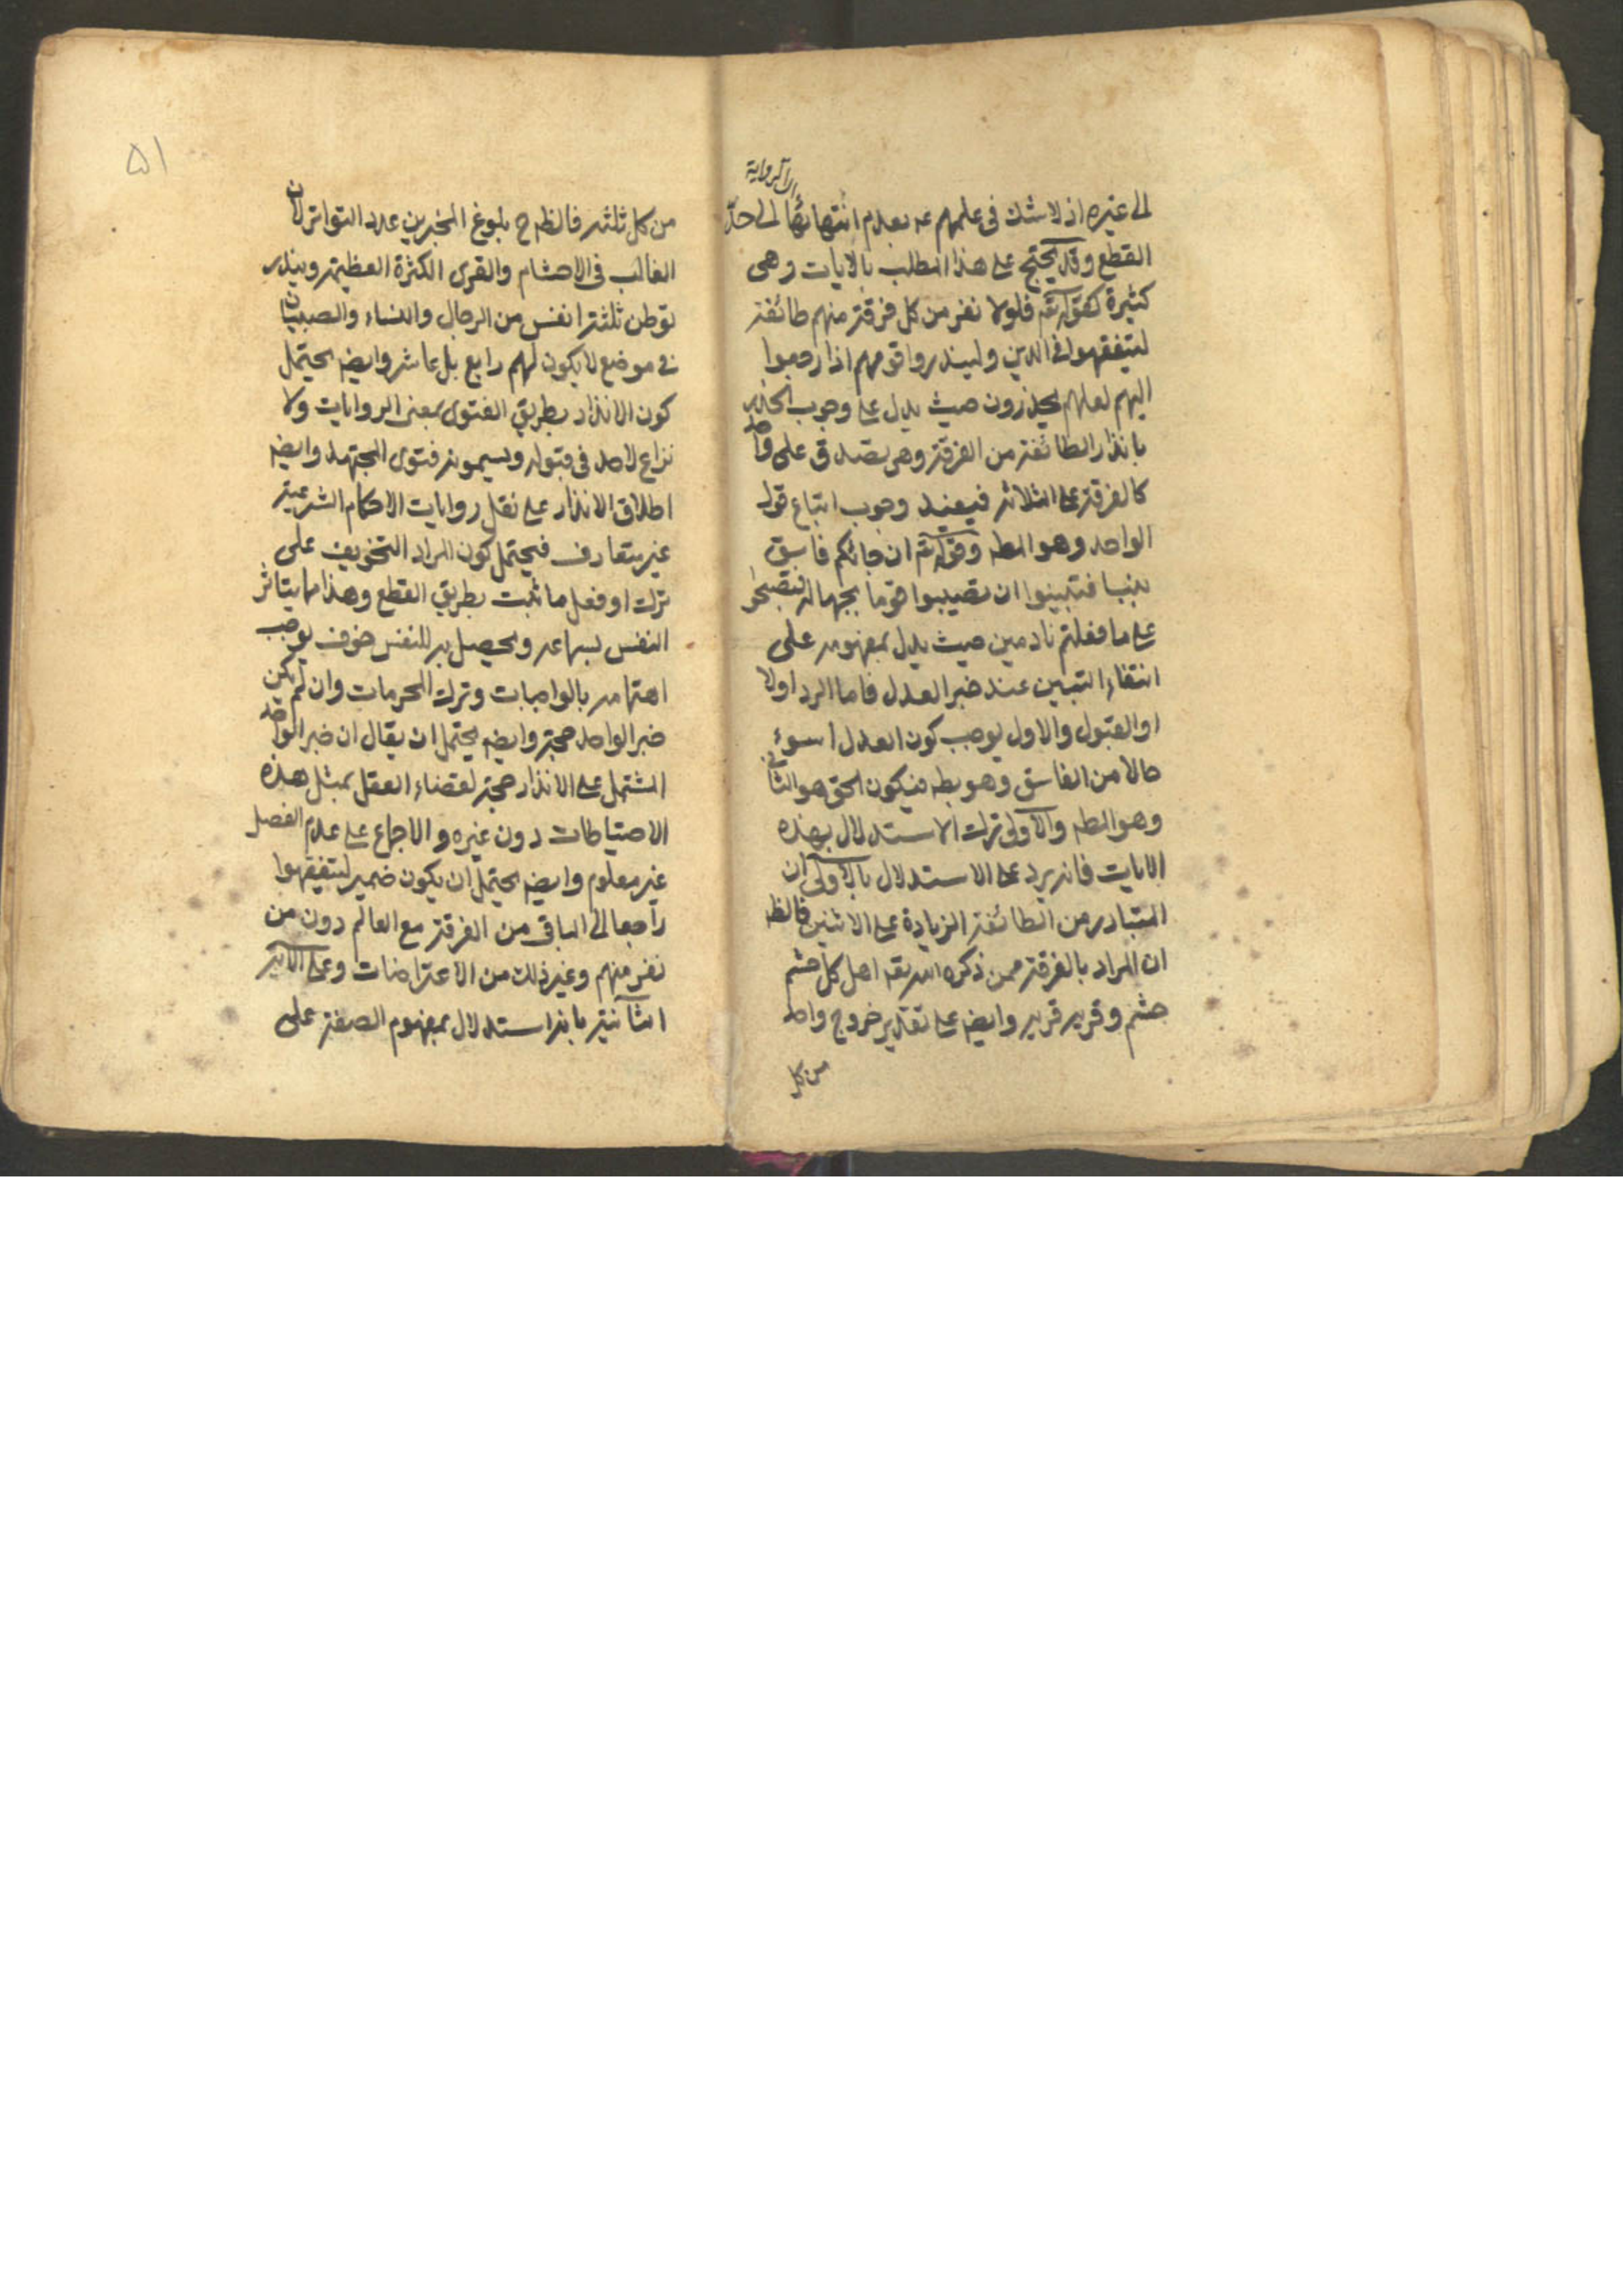 اى الرواية
الى غيره اذ لا شك فى علمهم عه بعدم انتهائها الى حدّ
القطع وقد يحتج على هذا المطلب بالايات وهى
كثيرة كقوله تعه فلولا نفر من كل فرقة منهم طائفة
ليتفقهوا فى الدين ولينذروا قومهم اذا رجعوا
اليهم لعلهم يحذرون حيث يدل على وجوب الحذر
بانذار الطائفة من الفرقة وهى يصدق على واحد
كالفرقة على الثلاثه فيفيد وجوب اتباع قول
الواحد وهو المطه وقوله تعه ان جائكم فاسق
بنبا فتبينوا ان تصيبوا قوما بجهالة فتصبحوا
على ما فعلتم نادمين حيث يدل بمفهومه على
انتفاء التبين عند خبر العدل فاما الرد اولا
او القبول والاول يوجب كون العدل اسوء
حالا من الفاسق وهو بطه فيكون الحق هو الثانى
وهو المطه والاولى ترك الاستدلال بهذه
الايات فانه يرد على الاستدلال بالاولى ان
المتبادر من الطائفة الزيادة على الاثنين فالظه
ان المراد بالفرقة ممن ذكره الله تعه اهل كل حشم
حشم وقريه قريه وايضه على تقدير خروج واحد
من كل
۵۱
من كل ثلثه فالظه ح بلوغ المخبرين عدد التواتر لان
الغالب فى الاحشام والقرى الكثرة العظيمة ويندر
توطن ثلثة انفس من الرجال والنساء والصبيان
فى موضع لا يكون لهم رابع بل عاشر وايضه يحتمل
كون الانذار بطريق الفتوى بمعنى الروايات ولا
نزاع لاحد فى قبوله ويسمونه فتوى المجتهد وايضه
اطلاق الانذار على نقل روايات الاحكام الشرعية
غير متعارف فيحتمل كون المراد التخويف على
ترك او فعل ما ثبت بطريق القطع وهذا مما يتاثر
النفس بسماعه ويحصل به للنفس خوف يوجب
اهتمامه بالواجبات وترك المحرمات وان لم يكن
خبر الواحد حجة وايضه يحتمل ان يقال ان خبر الواحد
المشتمل على الانذار حجة لقضاء العقل بمثل هذه
الاحتياطات دون غيره والاجماع على عدم الفصل
غير معلوم وايضه يحتمل ان يكون ضمير ليتفقهوا
راجعا الى الباقى من الفرقة مع العالم دون من
نفر منهم وغير ذلك من الاعتراضات وعلى الايه
الثانية بانه استدلال بمفهوم الصفة على